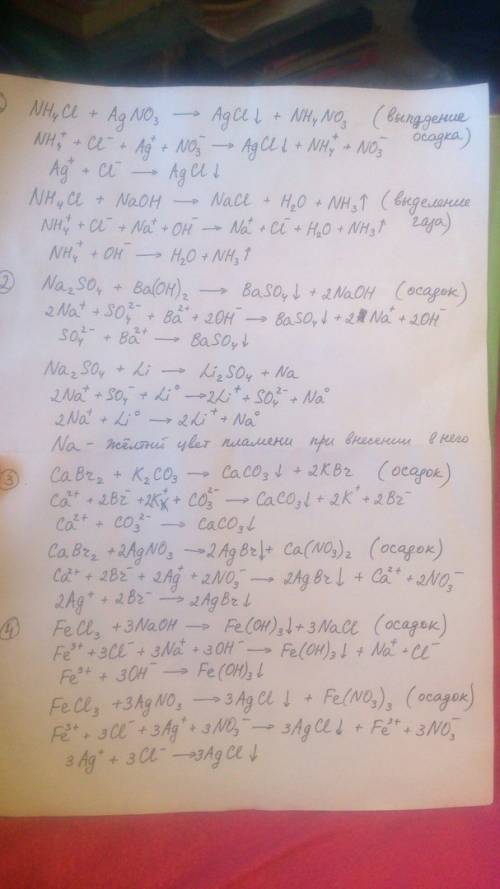 NH₄Cl + AgNO₃ → AgCl↓ + NH₄NO₃ (выпадение осадка)
NH₄⁺ + Cl⁻ + Ag⁺ + NO₃⁻ → AgCl↓ + NH₄⁺ + NO₃⁻
Ag⁺ + Cl⁻ → AgCl↓
NH₄Cl + NaOH → NaCl + H₂O + NH₃↑ (выделение газа)
NH₄⁺ + Cl⁻ + Na⁺ + OH⁻ → Na⁺ + Cl⁻ + H₂O + NH₃↑
NH₄⁺ + OH⁻ → H₂O + NH₃↑
2 Na₂SO₄ + Ba(OH)₂ → BaSO₄↓ + 2NaOH (осадок)
2Na⁺ + SO₄²⁻ + Ba²⁺ + 2OH⁻ → BaSO₄↓ + 2Na⁺ + 2OH⁻
SO₄²⁻ + Ba²⁺ → BaSO₄↓
Na₂SO₄ + Li → Li₂SO₄ + Na
2Na⁺ + SO₄⁻ + Li⁰ → 2Li⁺ + SO₄²⁻ + Na⁰
2Na⁺ + Li⁰ → 2Li⁺ + Na⁰
Na – жёлтый цвет пламени при внесении в него
3 CaBr₂ + K₂CO₃ → CaCO₃↓ + 2KBr (осадок)
Ca²⁺ + 2Br⁻ + 2K⁺ + CO₃²⁻ → CaCO₃↓ + 2K⁺ + 2Br⁻
Ca²⁺ + CO₃²⁻ → CaCO₃↓
CaBr₂ + 2AgNO₃ → 2AgBr↓ + Ca(NO₃)₂ (осадок)
Ca²⁺ + 2Br⁻ + 2Ag⁺ + 2NO₃⁻ → 2AgBr↓ + Ca²⁺ + 2NO₃⁻
2Ag⁺ + 2Br⁻ → 2AgBr↓
4 FeCl₃ + 3NaOH → Fe(OH)₃↓ + 3NaCl (осадок)
Fe³⁺ + 3Cl⁻ + 3Na⁺ + 3OH⁻ → Fe(OH)₃↓ + Na⁺ + Cl⁻
Fe³⁺ + 3OH⁻ → Fe(OH)₃↓
FeCl₃ + 3AgNO₃ → 3AgCl↓ + Fe(NO₃)₃ (осадок)
Fe³⁺ + 3Cl⁻ + 3Ag⁺ + 3NO₃⁻ → 3AgCl↓ + Fe³⁺ + 3NO₃⁻
3Ag⁺ + 3Cl⁻ → 3AgCl↓